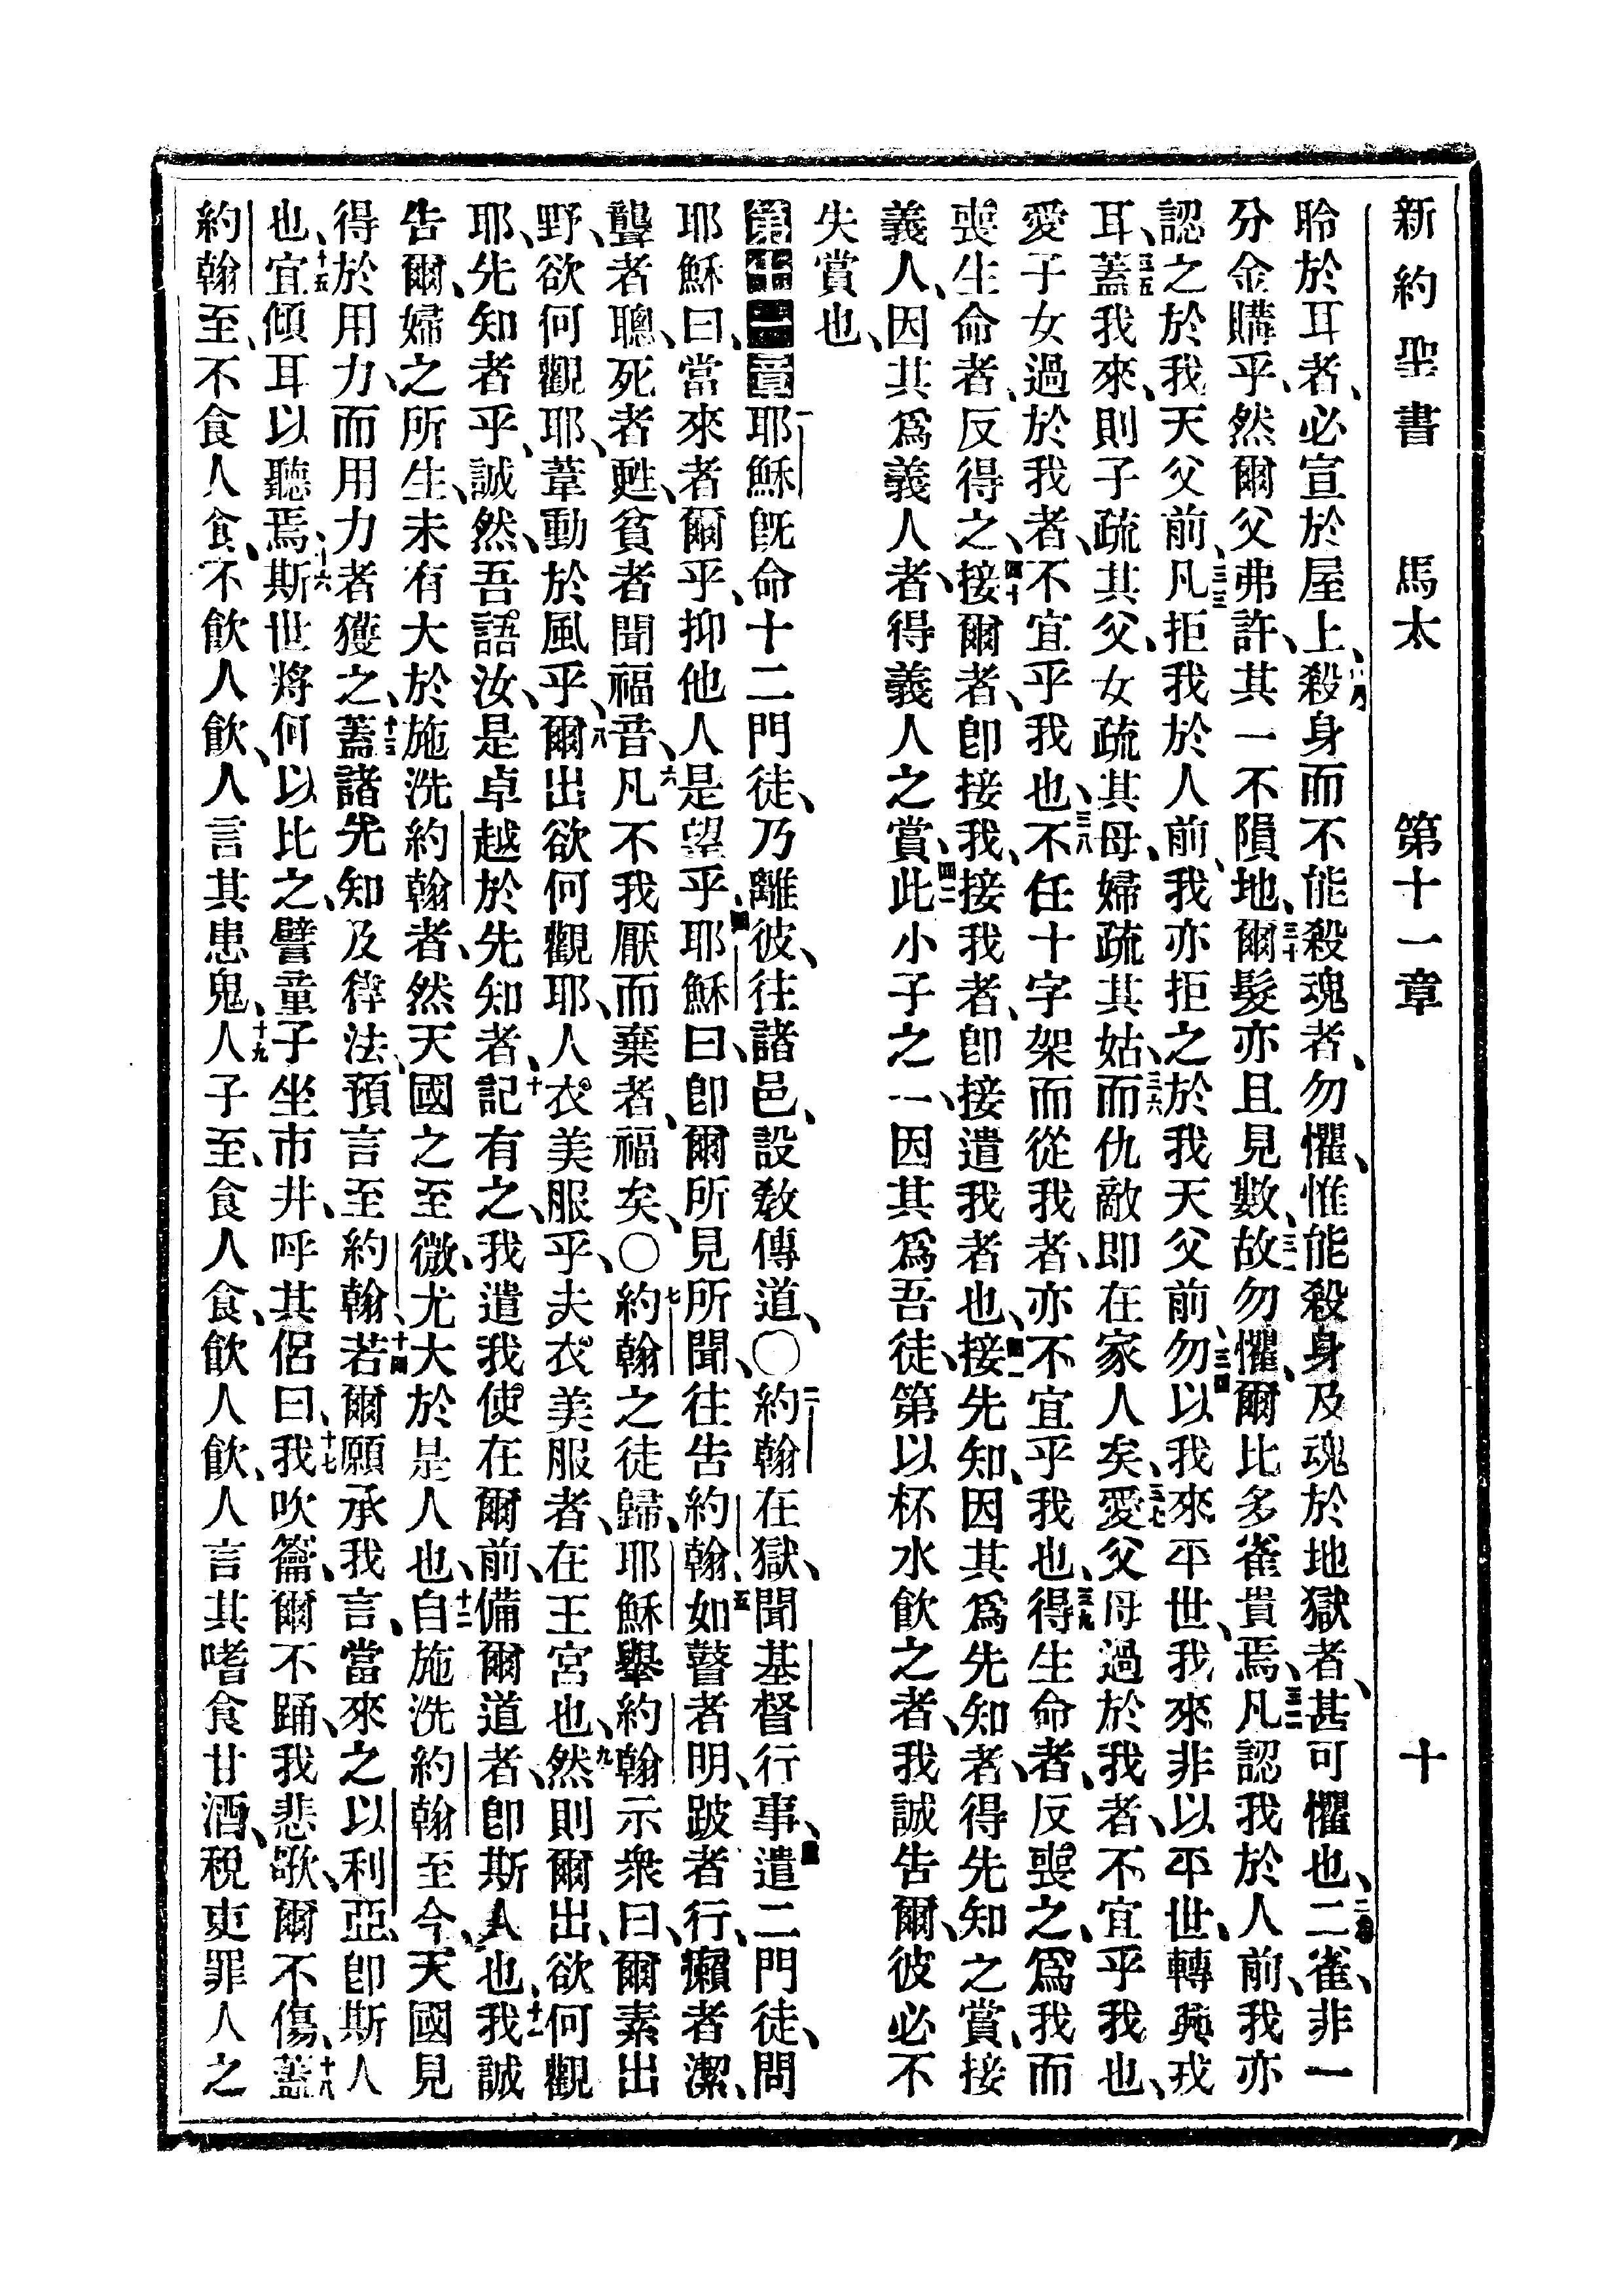 新約聖書 馬太 第十一章 十
聆於耳者、必宣於屋上、殺身而不能殺魂者、勿懼、惟能殺身及魂於地獄者、甚可懼也、二雀、非一
分金購乎、然爾父弗許、其一不隕地、三十爾髮亦且見數、三一故勿懼、爾比多雀貴焉、三二凡認我於人前、我亦
認之於我天父前、三三凡拒我於人前、我亦拒之於我天父前、三四勿以我來平世、我來非以平世、轉興戎
耳、三五蓋我來、則子疏其父、女疏其母、婦疏其姑、三六而仇敵即在家人矣、三七愛父母過於我者、不宜乎我也、
愛子女過於我者、不宜乎我也、三八不任十字架而從我者、亦不宜乎我也、三九得生命者、反喪之、爲我而
喪生命者、反得之、四十接爾者、卽接我、接我者、卽接遣我者也、四一接先知、因其爲先知者、得先知之賞、接
義人、因其爲義人者、得義人之賞、四二此小子之一、因其爲吾徒、第以杯水飮之者、我誠告爾、彼必不
失賞也、
第十一章 一耶穌旣命十二門徒、乃離彼、往諸邑、設敎傳道、〇二約翰在獄、聞基督行事、遣二門徒、問
耶穌曰、當來者爾乎、抑他人是望乎、四耶穌曰、卽爾所見所聞、往告約翰、五如瞽者明、跛者行、癩者潔、
聾者聰、死者甦、貧者聞福音、六凡不我厭而棄者、福矣、〇七約翰之徒歸、耶穌舉約翰示衆曰、爾素出
野、欲何觀耶、葦動於風乎、八爾出欲何觀耶、人衣美服乎、夫衣美服者、在王宮也、九然則爾出、欲何觀
耶、先知者乎、誠然、吾語汝、是卓越於先知者、十記有之、我遣我使在爾前、備爾道者、卽斯人也、十一我誠
告爾、婦之所生、未有大於施洗約翰者、然天國之至微、尤大於是人也、十二自施洗約翰至今、天國見
得於用力、而用力者獲之、十三蓋諸先知及律法、預言至約翰、十四若爾願承我言、當來之以利亞、卽斯人
也、十五宜傾耳以聽焉、十六斯世將何以比之、譬童子坐市井、呼其侶曰、十七我吹籥、爾不踊、我悲歌、爾不傷、十八蓋
約翰至、不食人食、不飮人飮、人言其患鬼、十九人子至、食人食、飮人飮、人言其嗜食甘酒、稅吏罪人之